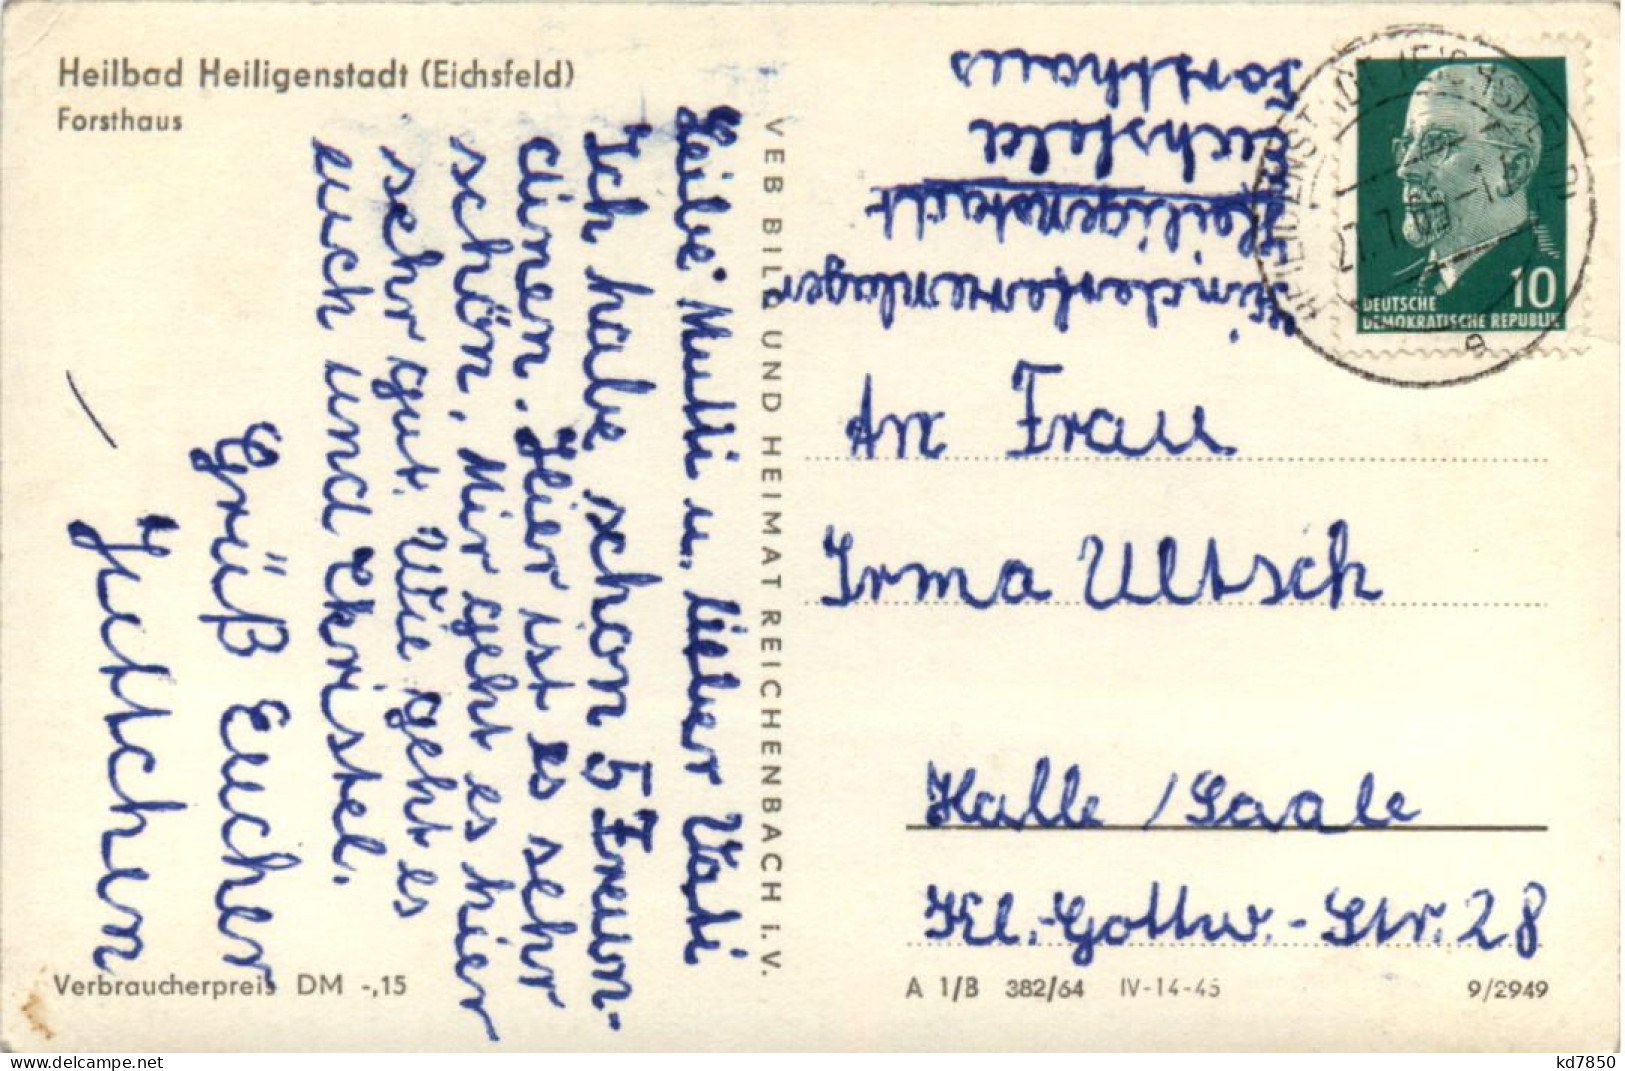 Heilbad Heiligenstadt (Eichsfeld)
Forsthaus
Leibe Mutti u. lieber Vati
Ich habe schon 5 Freun-
dinen. Hier ist es sehr
schön. Mir geht es hier
sehr gut. Wie geht es
euch und Ekristel.
Gruß Eucher
Juttchen
VEB BILD UND HEIMAT REICHENBACH i. V.
Kinderferienlager
Heiligenstadt
Eichsfeld
Forsthaus
HEILIGENSTADT (EICHSFELD)
DEUTSCHE
DEMOKRATISCHE REPUBLIK
10
An Frau
Irma Ultsch
Halle / Saale
Kl.-Gottw.-Str. 28
Verbraucherpreis DM -,15
A 1/B 382/64 IV-14-45
9/2949
www.delcampe.net
kd7850